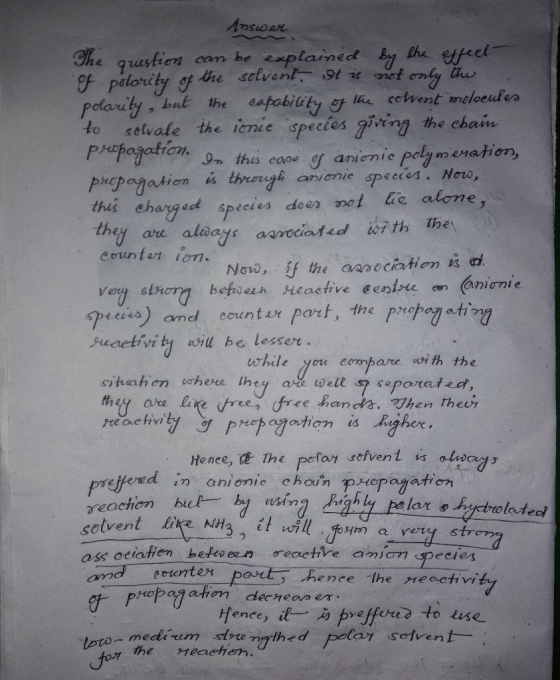 Answer.
The question can be explained by the effect
of polarity of the solvent. It is not only the
polarity, but the capability of the solvent molecules
to solvate the ionic species giving the chain
propagation. In this case of anionic polymeration,
propagation is through anionic species. Now,
this charged species does not lie alone,
they are always associated with the
counter ion.
Now, if the association is
very strong between reactive centre (anionic
species) and counter part, the propagating
reactivity will be lesser.
While you compare with the
situation where they are well separated,
they are like free, free hands. Then their
reactivity of propagation is higher.
Hence, the polar solvent is always
preffered in anionic chain propagation
reaction but by using highly polar hydrolated
solvent like NH3, it will form a very strong
association between reactive anion species
and counter part, hence the reactivity
of propagation decreases.
Hence, it is preffered to use
low-medium strengthed polar solvent
for the reaction.